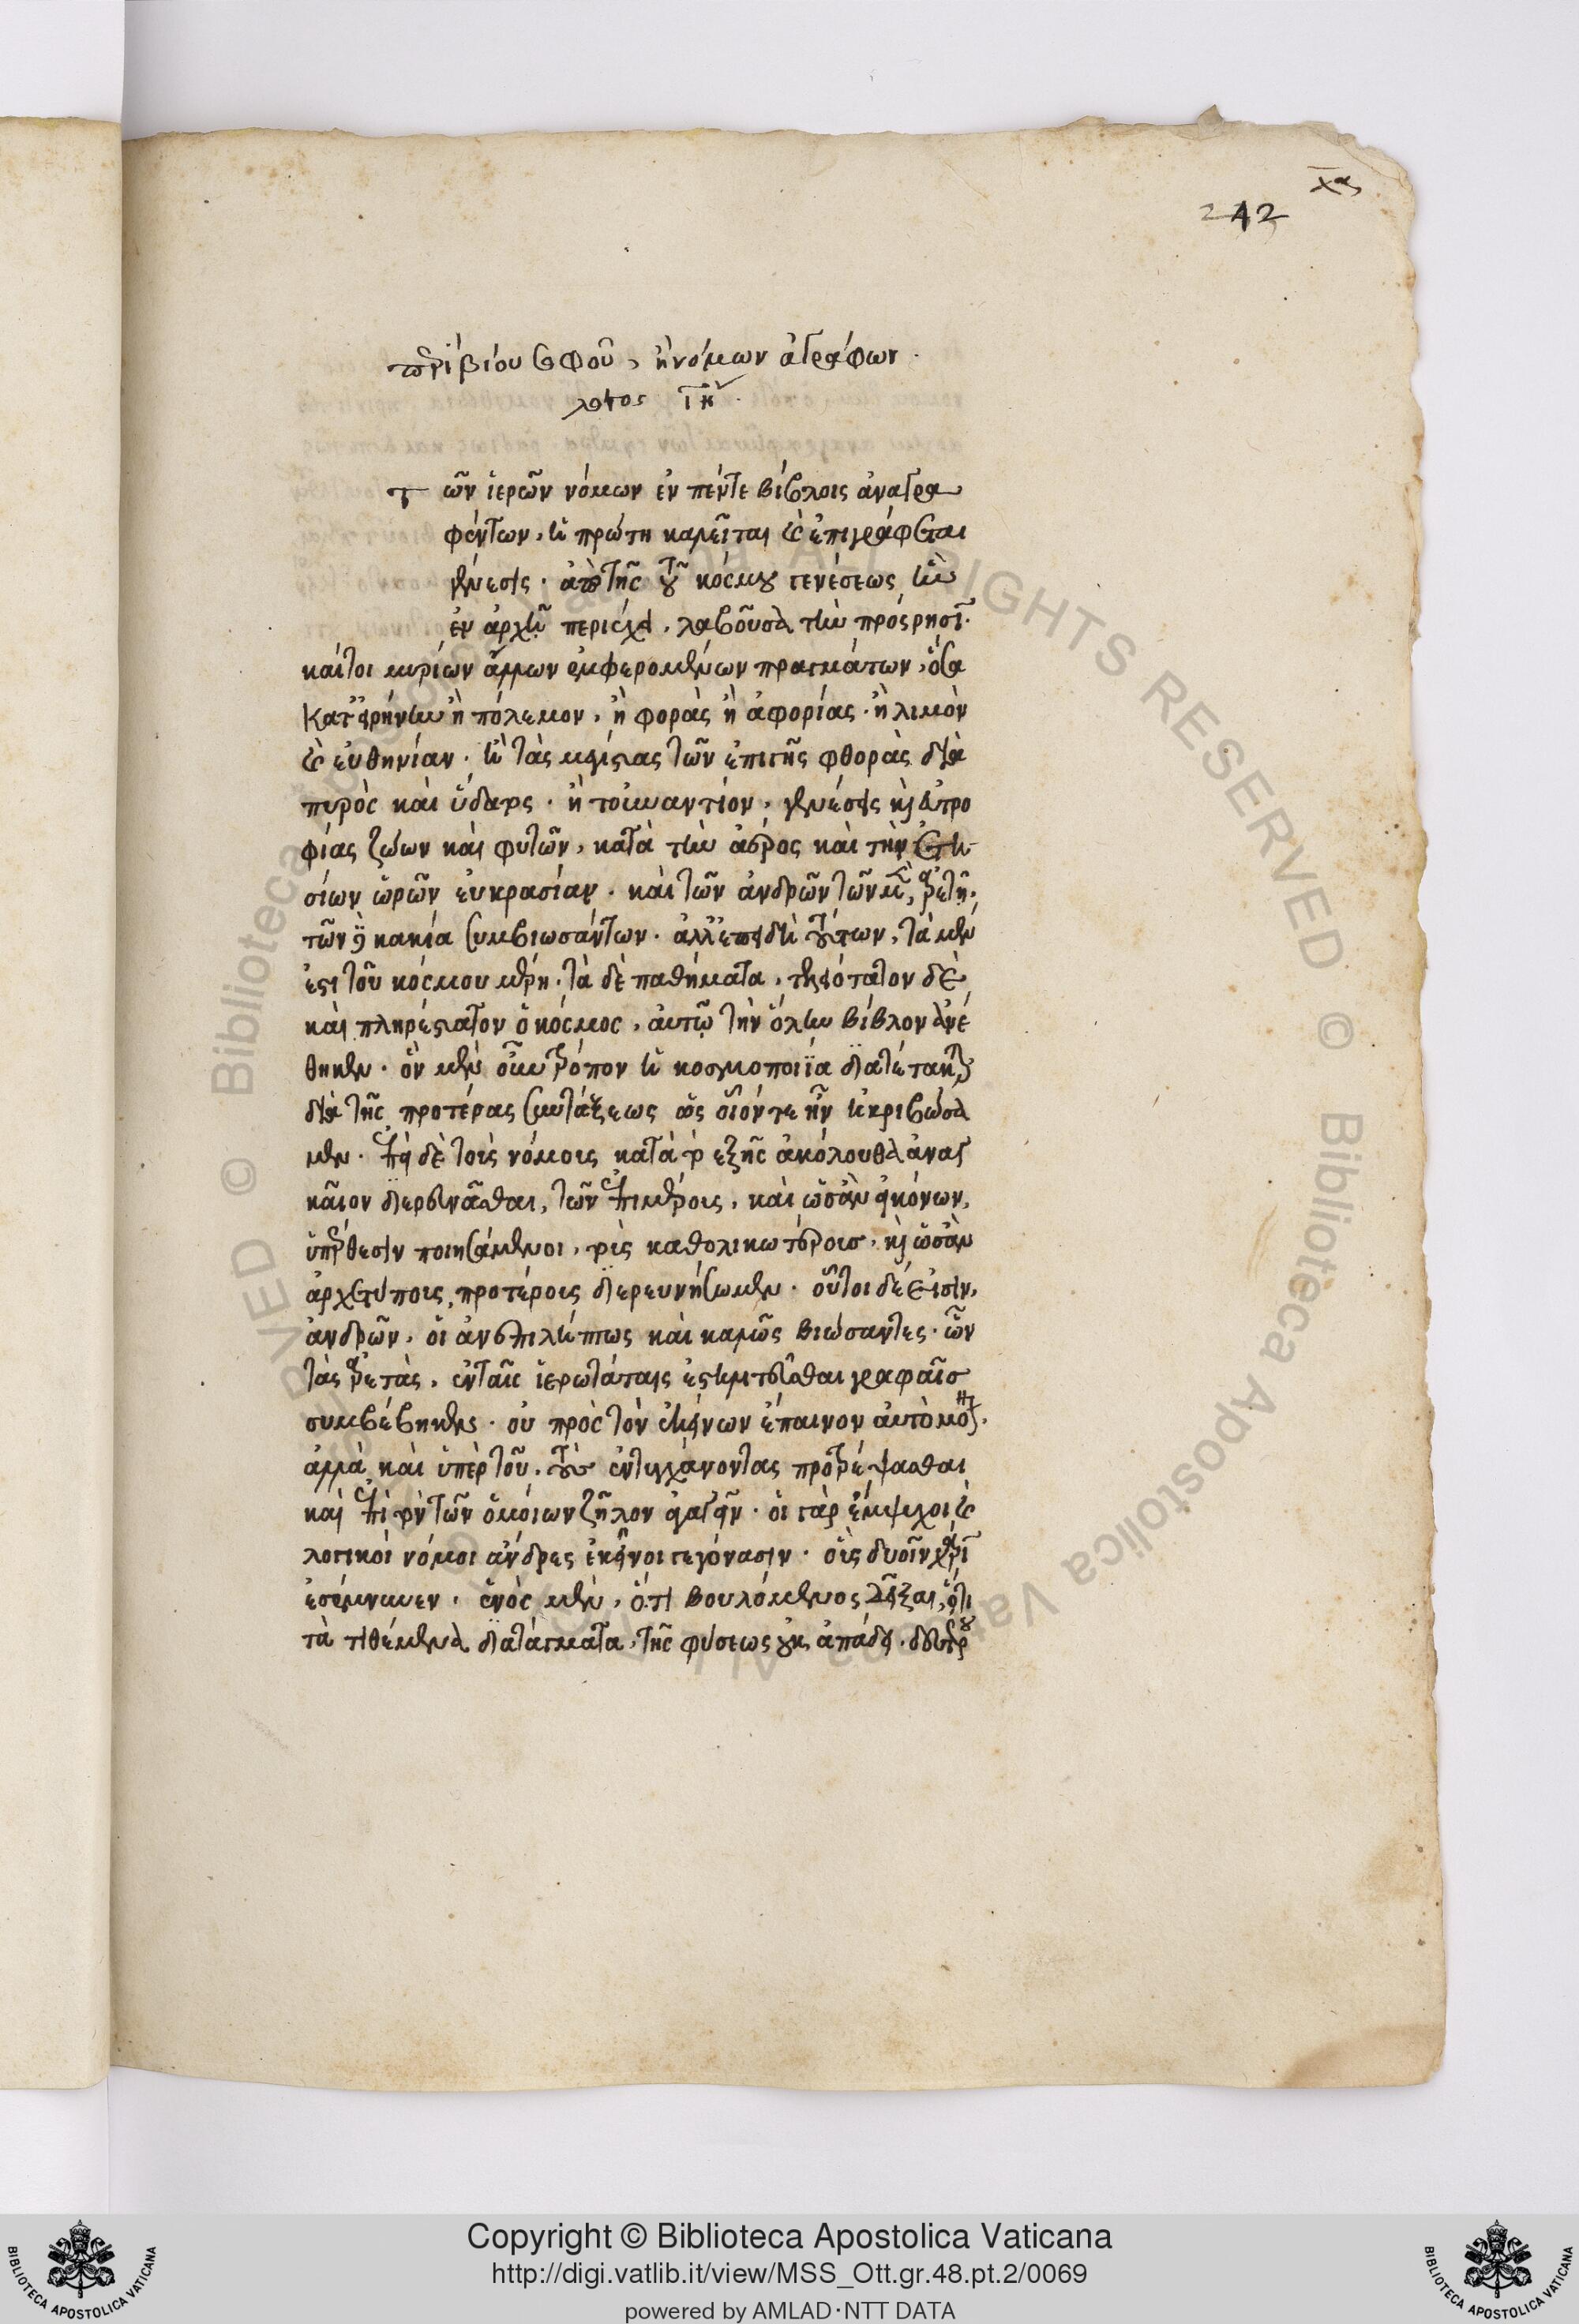 χα
242
περὶ βίου σοφοῦ, ἢ νόμων ἀγράφων.
λόγος ιη
Τῶν ἱερῶν νόμων ἐν πέντε βίβλοις ἀναγρα
φέντων, ἡ πρώτη καλεῖται καὶ ἐπιγράφεται
γένεσις. ἀπὸ τῆς τοῦ κόσμου γενέσεως ἣν
ἐν ἀρχῇ περιέχει, λαβοῦσα τὴν πρόσρησιν.
καίτοι μυρίων ἄλλων ἐμφερομένων πραγμάτων, ὅσα
κατ' εἰρήνην ἢ πόλεμον, ἢ φορὰς ἢ ἀφορίας. ἢ λιμὸν
καὶ εὐθηνίαν. ἢ τὰς μεγίστας τῶν ἐπὶ γῆς φθορὰς διὰ
πυρὸς καὶ ὕδατος. ἢ τοὐναντίον, γενέσεις καὶ εὐτρο
φίας ζώων καὶ φυτῶν, κατὰ τὴν ἀέρος καὶ τὴν ἐτη
σίων ὡρῶν εὐκρασίαν. καὶ τῶν ἀνδρῶν τῶν μὲν, ἀρετῇ.
τῶν δὲ κακία συμβιωσάντων. ἀλλ' ἐπειδὴ τούτων, τὰ μέν
ἐστι τοῦ κόσμου μέρη. τὰ δὲ παθήματα, τελειότατον δὲ
καὶ πληρέστατον ὁ κόσμος, αὐτῷ τὴν ὅλην βίβλον ἀνέ
θηκεν. ὃν μὲν οὖν τρόπον ἡ κοσμοποιΐα διατέτακται
διὰ τῆς προτέρας συντάξεως ὡς οἷόν τε ἦν ἠκριβώσα
μεν. ἐπεὶ δὲ τοὺς νόμους κατὰ τὸ ἑξῆς ἀκόλουθα ἀναγ
καῖον διερευνᾶσθαι, τῶν ἐπιμέρους, καὶ ὡσὰν εἰκόνων,
ὑπέρθεσιν ποιησάμενοι, τοὺς καθολικωτέρους, καὶ ὡσὰν
ἀρχετύπους, προτέρους διερευνήσωμεν. οὗτοι δέ εἰσιν,
ἀνδρῶν, οἱ ἀνεπιλήπτως καὶ καλῶς βιώσαντες. ὧν
τὰς ἀρετὰς, ἐν ταῖς ἱερωτάταις ἐστηλιτεῦσθαι γραφαῖς
συμβέβηκεν. οὐ πρὸς τὸν ἐκείνων ἔπαινον αὐτὸ μόνον.
ἀλλὰ καὶ ὑπὲρ τοῦ. τοὺς ἐντυγχάνοντας προτρέψασθαι
καὶ ἐπὶ τὸν τῶν ὁμοίων ζῆλον ἀγαγεῖν. οἱ γὰρ ἔμψυχοι καὶ
λογικοὶ νόμοι ἄνδρες ἐκεῖνοι γεγόνασιν. οὓς δυοῖν χάριν
ἐσέμνυνεν. ἑνὸς μὲν, ὅτι βουλόμενος δεῖξαι, ὅτι
τὰ τιθέμενα διατάγματα, τῆς φύσεως οὐκ ἀπάδει. δευτέρου
Copyright © Biblioteca Apostolica Vaticana
http://digi.vatlib.it/view/MSS_Ott.gr.48.pt.2/0069
powered by AMLAD·NTT DATA